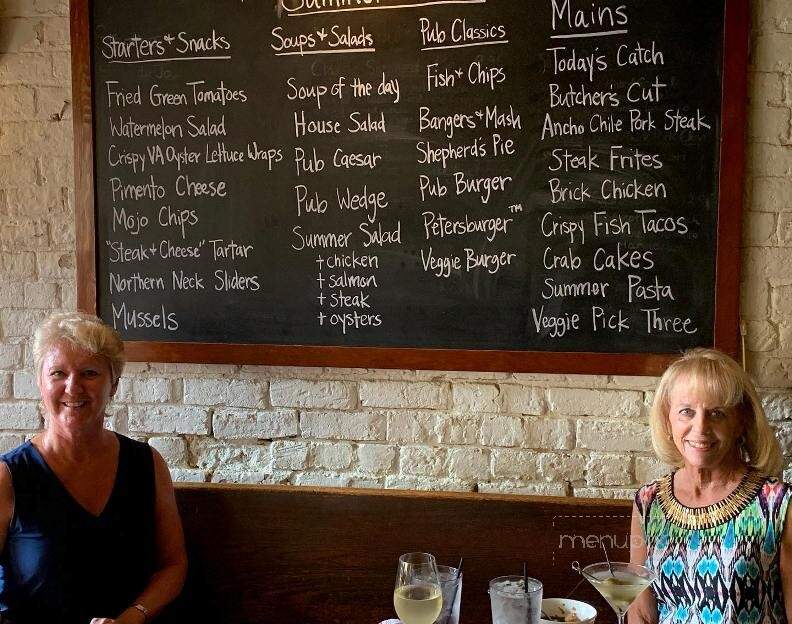 Summer
Starters + Snacks
Fried Green Tomatoes
Watermelon Salad
Crispy VA Oyster Lettuce Wraps
Pimento Cheese
Mojo Chips
"Steak + Cheese" Tartar
Northern Neck Sliders
Mussels
Soups + Salads
Soup of the day
House Salad
Pub Caesar
Pub Wedge
Summer Salad
+ chicken
+ salmon
+ steak
+ oysters
Pub Classics
Fish + Chips
Bangers + Mash
Shepherd's Pie
Pub Burger
Petersburger™
Veggie Burger
Mains
Today's Catch
Butcher's Cut
Ancho Chile Pork Steak
Steak Frites
Brick Chicken
Crispy Fish Tacos
Crab Cakes
Summer Pasta
Veggie Pick Three
menupix